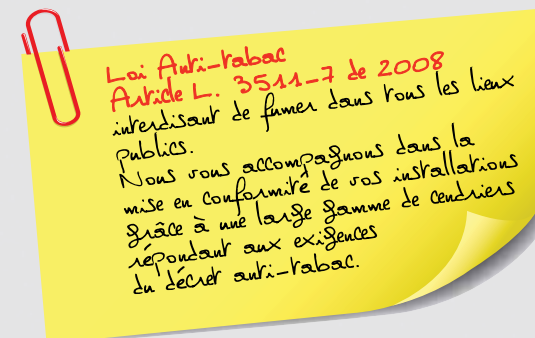 Loi Anti-tabac
Article L. 3511-7 de 2008
interdisant de fumer dans tous les lieux
publics.
Nous vous accompagnons dans la
mise en conformité de vos installations
grâce à une large gamme de cendriers
répondant aux exigences
du décret anti-tabac.